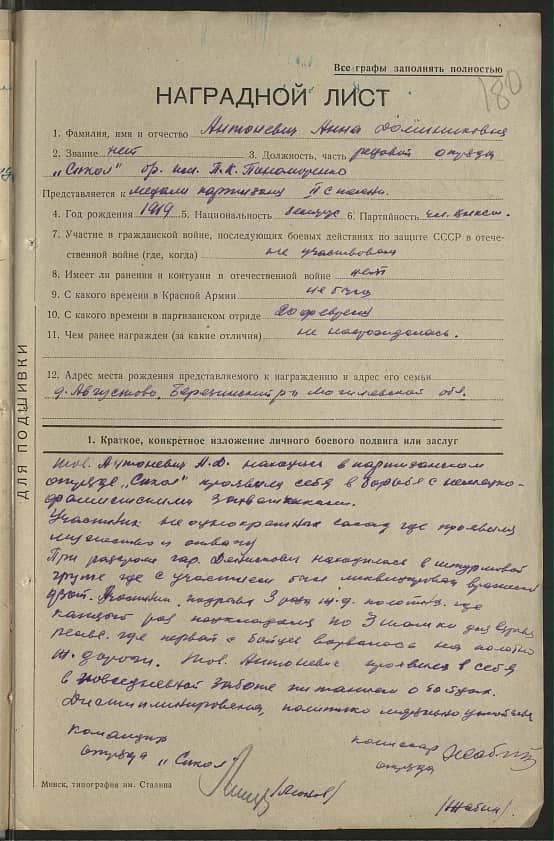 Все графы заполнять полностью
180
НАГРАДНОЙ ЛИСТ
1. Фамилия, имя и отчество Антоневич Анна Доминиковна
2. Звание нет 3. Должность, часть рядовой отряда
„Сокол" бр. им. П.К. Пономаренко
Представляется к медали партизану II степени
4. Год рождения 1919 5. Национальность белорус 6. Партийность чл. ВЛКСМ.
7. Участие в гражданской войне, последующих боевых действиях по защите СССР в отече-
ственной войне (где, когда) не участвовала
8. Имеет ли ранения и контузии в отечественной войне нет
9. С какого времени в Красной Армии не была
10. С какого времени в партизанском отряде 20 февраля
11. Чем ранее награжден (за какие отличия) не награждалась.
12. Адрес места рождения представляемого к награждению и адрес его семьи
д. Августово, Березинский р-н Могилевской обл.
ДЛЯ ПОДШИВКИ
1. Краткое, конкретное изложение личного боевого подвига или заслуг
Тов. Антоневич А.Д. находясь в партизанском
отряде „Сокол" проявила себя в борьбе с немецко-
фашистскими захватчиками.
Участник неоднократных засад где проявила
мужество и отвагу
При разгроме гар. находилась в штурмовой
группе где с участием был ликвидирован вражеский
дзот. Участник подрыва 3 раза ж.д. полотна. где
каждый раз накладала по 3 шашки для взрыва
рельс. где первой с бойцов ворвалась на полотно
ж. дороги. Тов. Антоневич проявила себя
в повседневной заботе питанием о бойцах.
Дисциплинирована, политико морально устойчива
Командир
отряда „Сокол"
комиссар
отряда
(Жабин)
Минск, типография им. Сталина